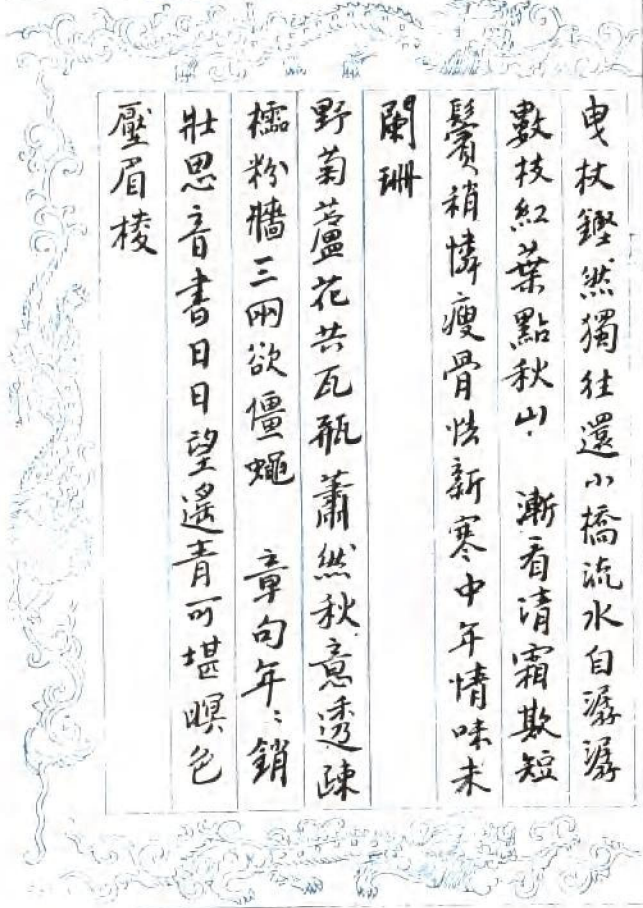 曳杖鏗然獨往還小橋流水自潺潺
數枝紅葉點秋山　漸看清霜欺短
鬢稍憐瘦骨怯新寒中年情味未
闌珊
野菊蘆花共瓦瓶蕭然秋意透疎
櫺粉牆三兩欲僵蠅　章句年〻銷
壯思音書日日望遙青可堪暝色
壓眉棱